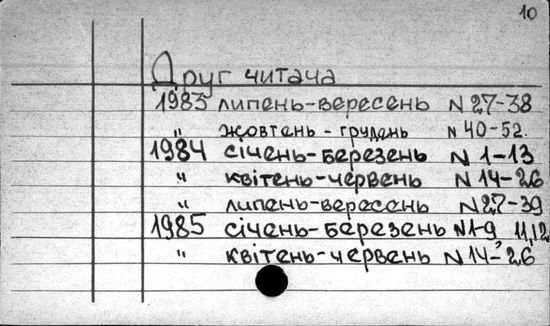 10
Друг читача
1983 липень-вересень N 27-38
" жовтень-грудень N 40-52.
1984 січень-березень N 1-13
" квітень-червень N 14-26
" липень-вересень N 27-39
1985 січень-березень N 1-9, 11,12
" квітень-червень N 14-26